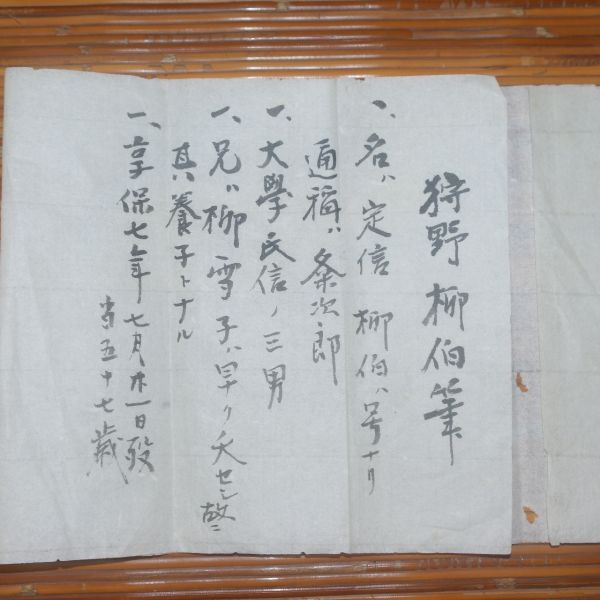 狩野柳伯筆
一、名ハ定信 柳伯ハ号ナリ
通稱ハ条次郎
一、大學氏信ノ三男
一、兄ハ柳雪子ハ早ク夭セシ故ニ
其ノ養子トナル
一、享保七年七月廿一日歿
当五十七歳